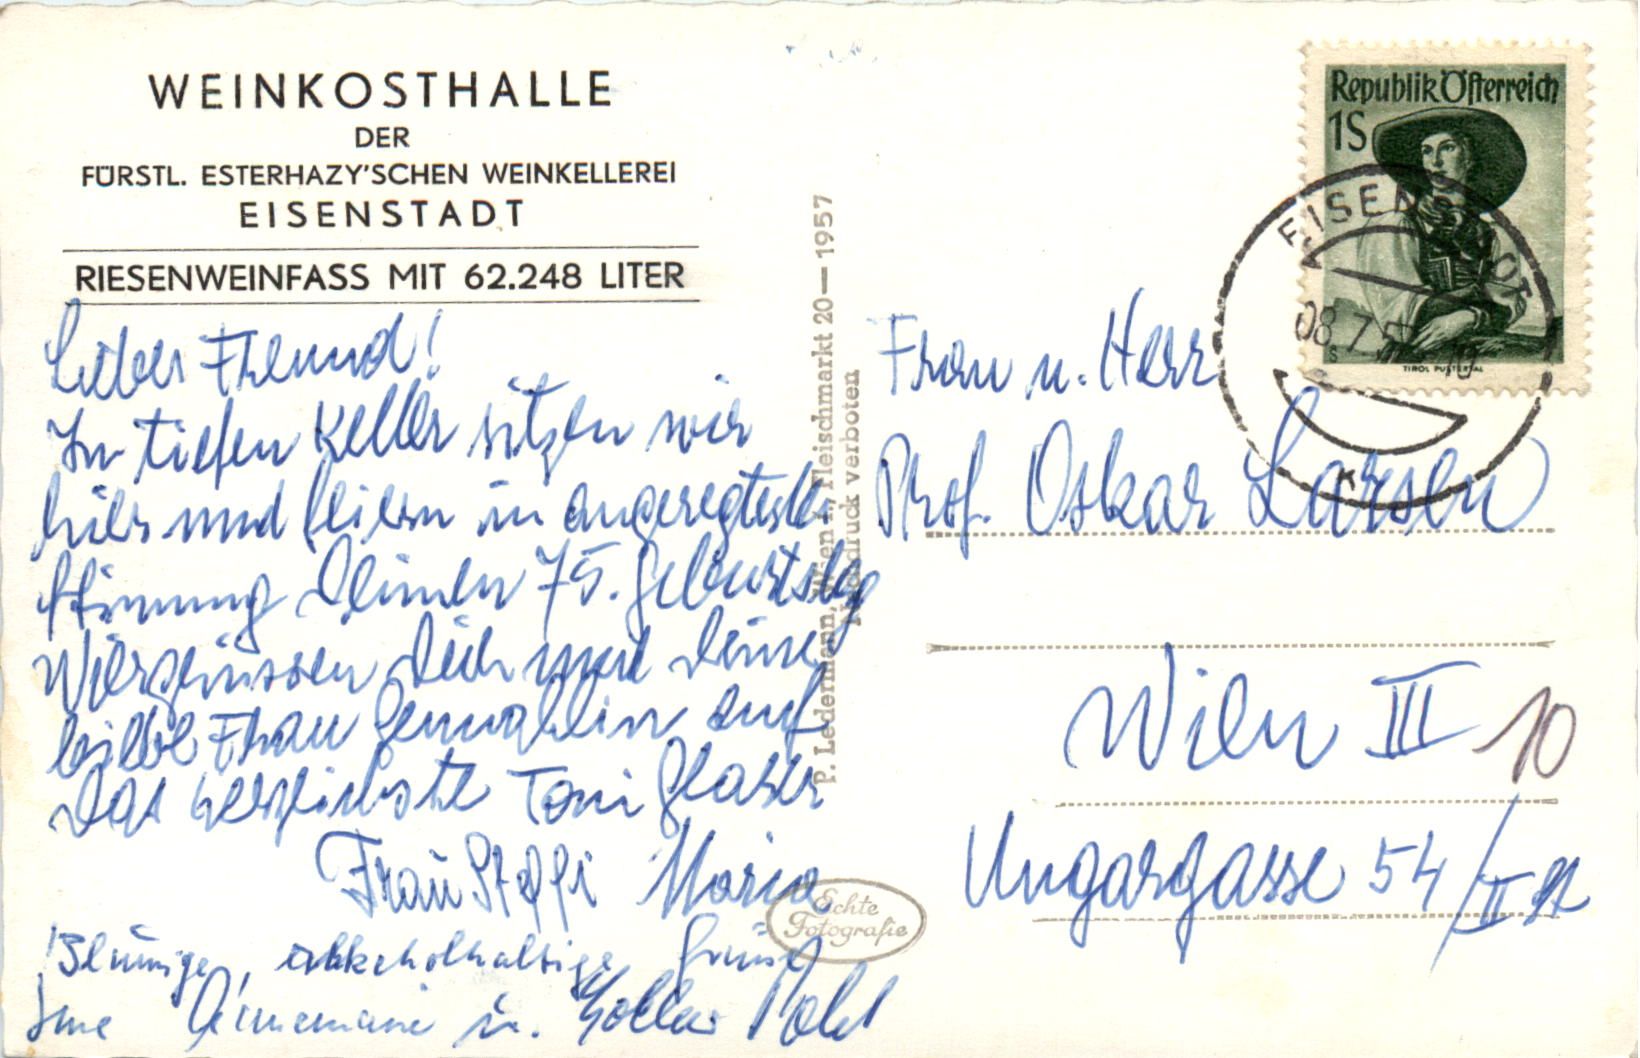 WEINKOSTHALLE
DER
FÜRSTL. ESTERHAZY'SCHEN WEINKELLEREI
EISENSTADT
RIESENWEINFASS MIT 62.248 LITER
Lieber Freund!
Im tiefen Keller sitzen wir
hier und feiern in angeregtester
Stimmung Deinen 75. Geburtstag
Wir grüssen Dich und Deine
liebe Frau Gemahlin auf
das herzlichste Toni Glaser
Frau Steffi Maria
Blumige, alkoholhaltige Grüße
u.
P. Ledermann, Wien I., Fleischmarkt 20—1957
Nachdruck verboten
Echte
Fotografie
Republik Österreich
1S
TIROL PUSTERTAL
EISENSTADT
08.7.57
K
Frau u. Herr
Prof. Oskar Larsen
Wien III
10
Ungargasse 54/II St